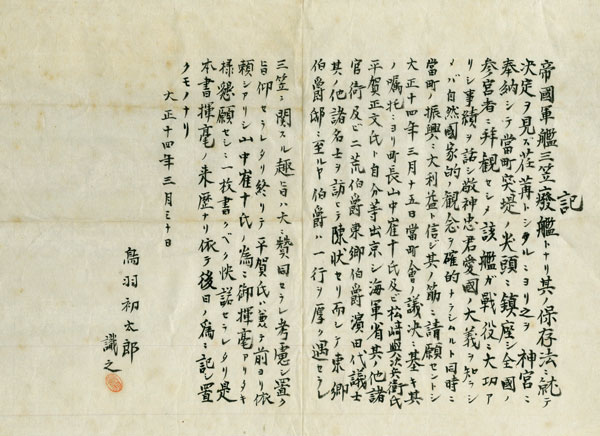 記
帝國軍艦三笠ハ廢艦トナリ其ノ保存法ニ就テ
決定ヲ見ズ荏苒トシタルニヨリ之ヲ神宮ニ
奉納シテ當町突堤ノ尖頭ニ鎮座シ全國ノ
参宮者ニ拜観セシメ該艦ガ戦役ニ大功ア
リシ事績ヲ語シ敬神忠君愛國ノ大義ヲ知ラシ
メバ自然國家的ノ観念ヲ確的ナラシムルト同時ニ
當町ノ振興ニ大利益ト信ジ其ノ筋ニ請願セントシ
大正十四年三月十五日當町會ノ議决ニ基キ其
ノ嘱托ニヨリ町長山中崔十氏及ビ松﨑兵衛氏
平賀正文氏ト自分等出京シ海軍省其ノ他諸
官衙及ビ二荒伯爵東郷伯爵濱田代議士
其ノ他諸名士ヲ訪セテ陳状セリ而シテ東郷
伯爵邸ニ至ルヤ伯爵ハ一行ヲ厚ク遇セラレ
三笠ニ関スル趣旨ハ大ニ賛同セラレ考慮シ置ク
旨仰セラレタリ終リテ平賀氏ハ兼テ前ヨリ依
頼シアリシ山中崔十氏ノ為ニ御揮毫アリタキ
様懇願セシニ一枚書クベク快諾セラレタリ是
本書揮毫ノ来歴ナリ依テ後日ノ為ニ記シ置
クモノナリ
大正十四年三月三十日
鳥羽初太郎
識之